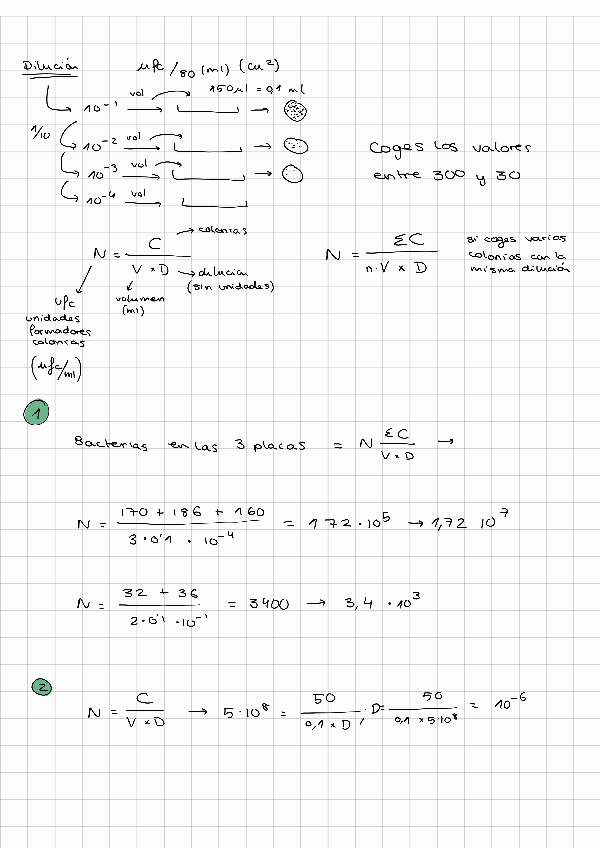 Dilución
ufc /80 (ml) (cm²)
150µl = 0,1 ml
10⁻¹ vol
1/10
10⁻² vol
10⁻³ vol
10⁻⁴ vol
Coges los valores
entre 300 y 30
N = C / V × D
→ colonias
→ dilución
(sin unidades)
volumen
(ml)
ufc
unidades
formadores
colonias
(ufc/ml)
N = ΣC / n·V × D
si coges varias
colonias con la
misma dilución
1
Bacterias en las 3 placas = N ΣC / V × D →
N = 170 + 186 + 160 / 3 · 0'1 · 10⁻⁴ = 172 · 10⁵ → 1,72 10⁷
N = 32 + 36 / 2 · 0'1 · 10⁻¹ = 3400 → 3,4 · 10³
2
N = C / V × D → 5 · 10⁸ = 50 / 0,1 × D , · D = 50 / 0,1 × 5·10⁸ = 10⁻⁶